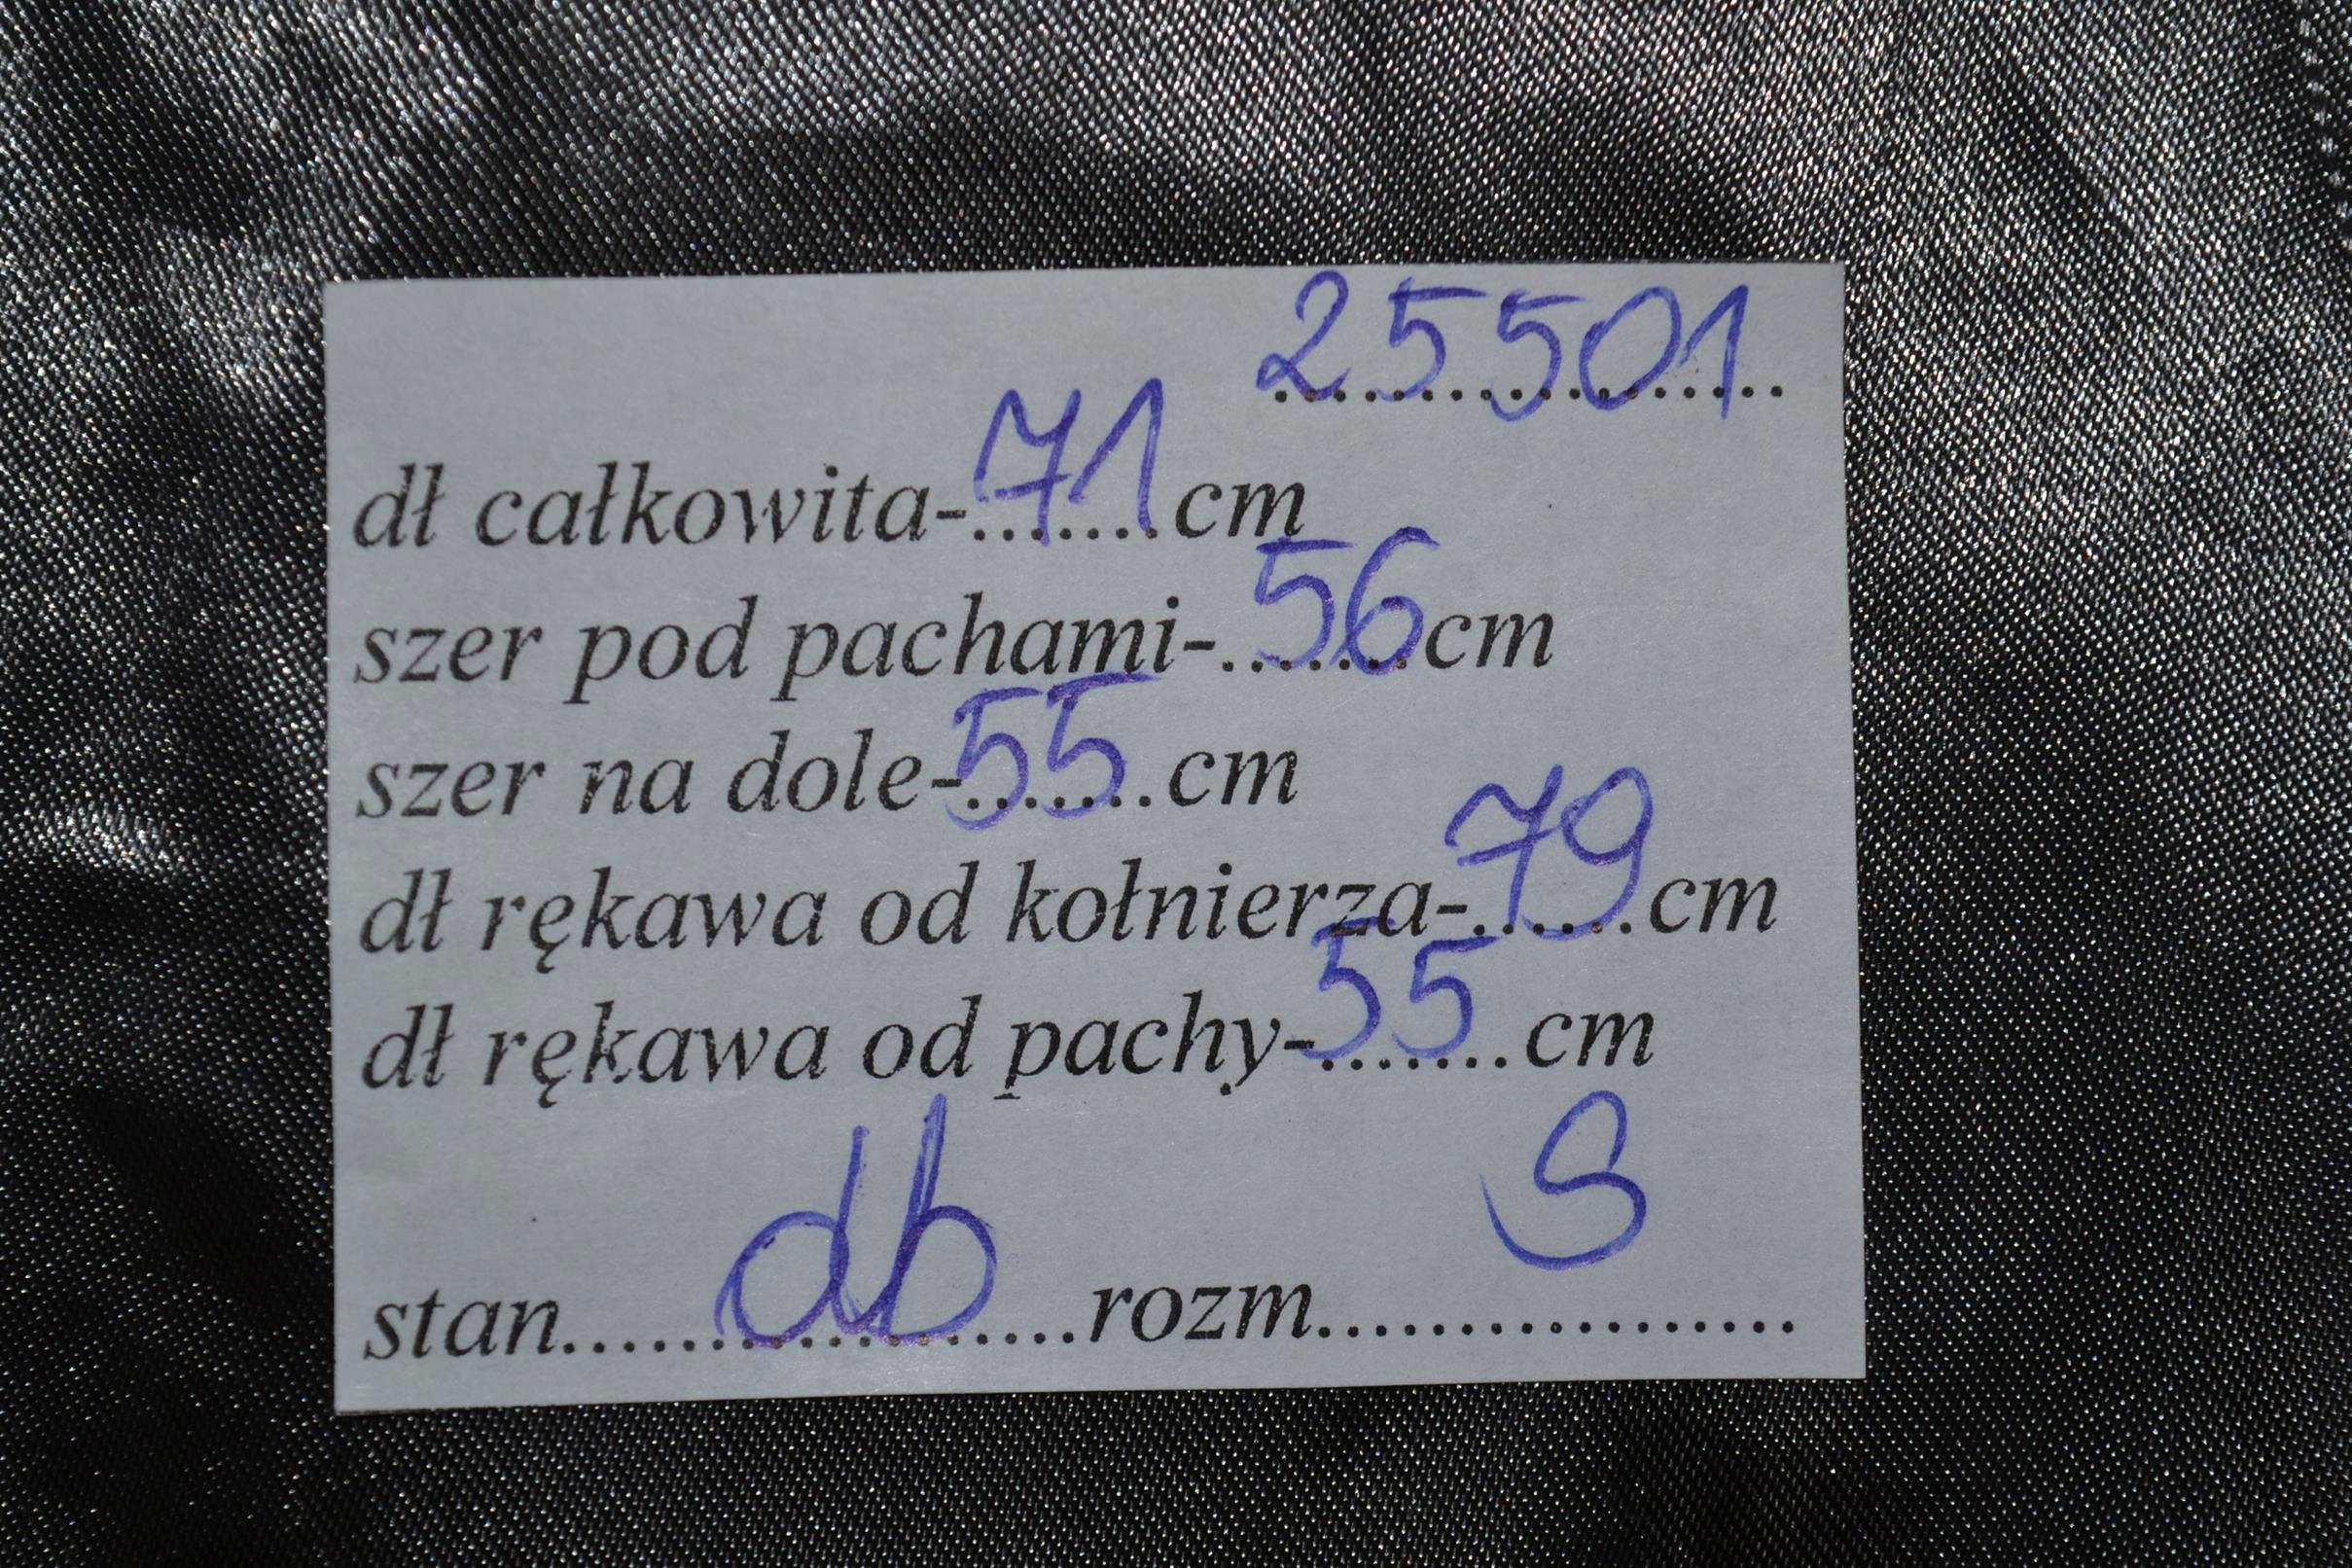 25501
dł całkowita-71cm
szer pod pachami-56cm
szer na dole-55cm
dł rękawa od kołnierza-79cm
dł rękawa od pachy-55cm
stan db rozm S